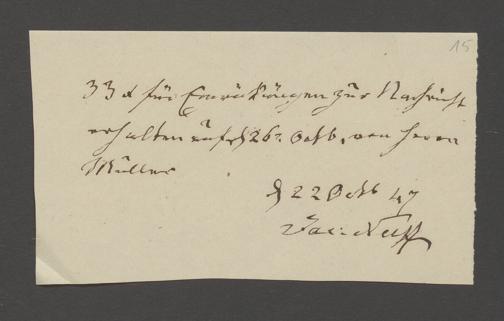 15
33 für Einrückungen zur Nachricht
erhalten auf d 26t. Octb. von Herrn
Müller
d 22 Octb 47